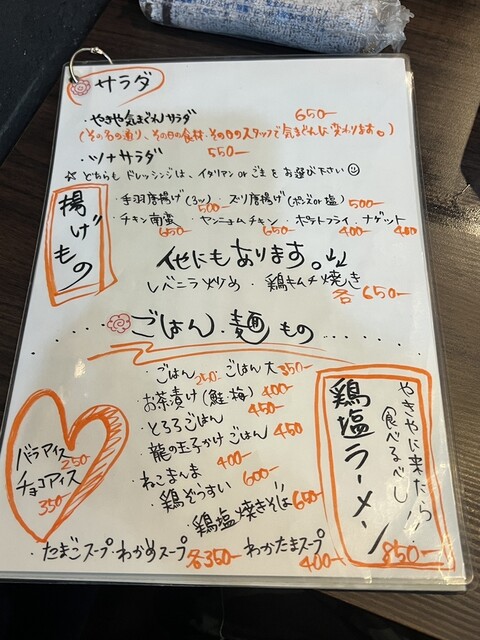 サラダ
・やきや気まぐれサラダ 650-
(その名の通り、その日の食材・その日のスタッフで気まぐれに変わります。)
・ツナサラダ 550-
☆ どちらも ドレッシングは、イタリアン or ごま をお選び下さい☺
揚げもの
・手羽唐揚げ(3ツ) 500- ・ズリ唐揚げ(ポンズor塩) 500-
・チキン南蛮 650- ・ヤンニョムチキン 650- ・ポテトフライ 400- ・ナゲット 400
他にもあります。
・レバニラ炒め ・鶏キムチ焼き 各650-
ごはん・麺もの
・ごはん 250- ごはん大 350-
・お茶漬け(鮭・梅) 400-
・とろろごはん 450-
・龍の玉子かけごはん 450
・ねこまんま 400-
・鶏ぞうすい 600-
・鶏塩焼きそば 650-
・たまごスープ・わかめスープ 各350- わかたまスープ 400-
バニラアイス 250-
チョコアイス 350-
やきやに来たら
食べるべし!
鶏塩ラーメン
850-